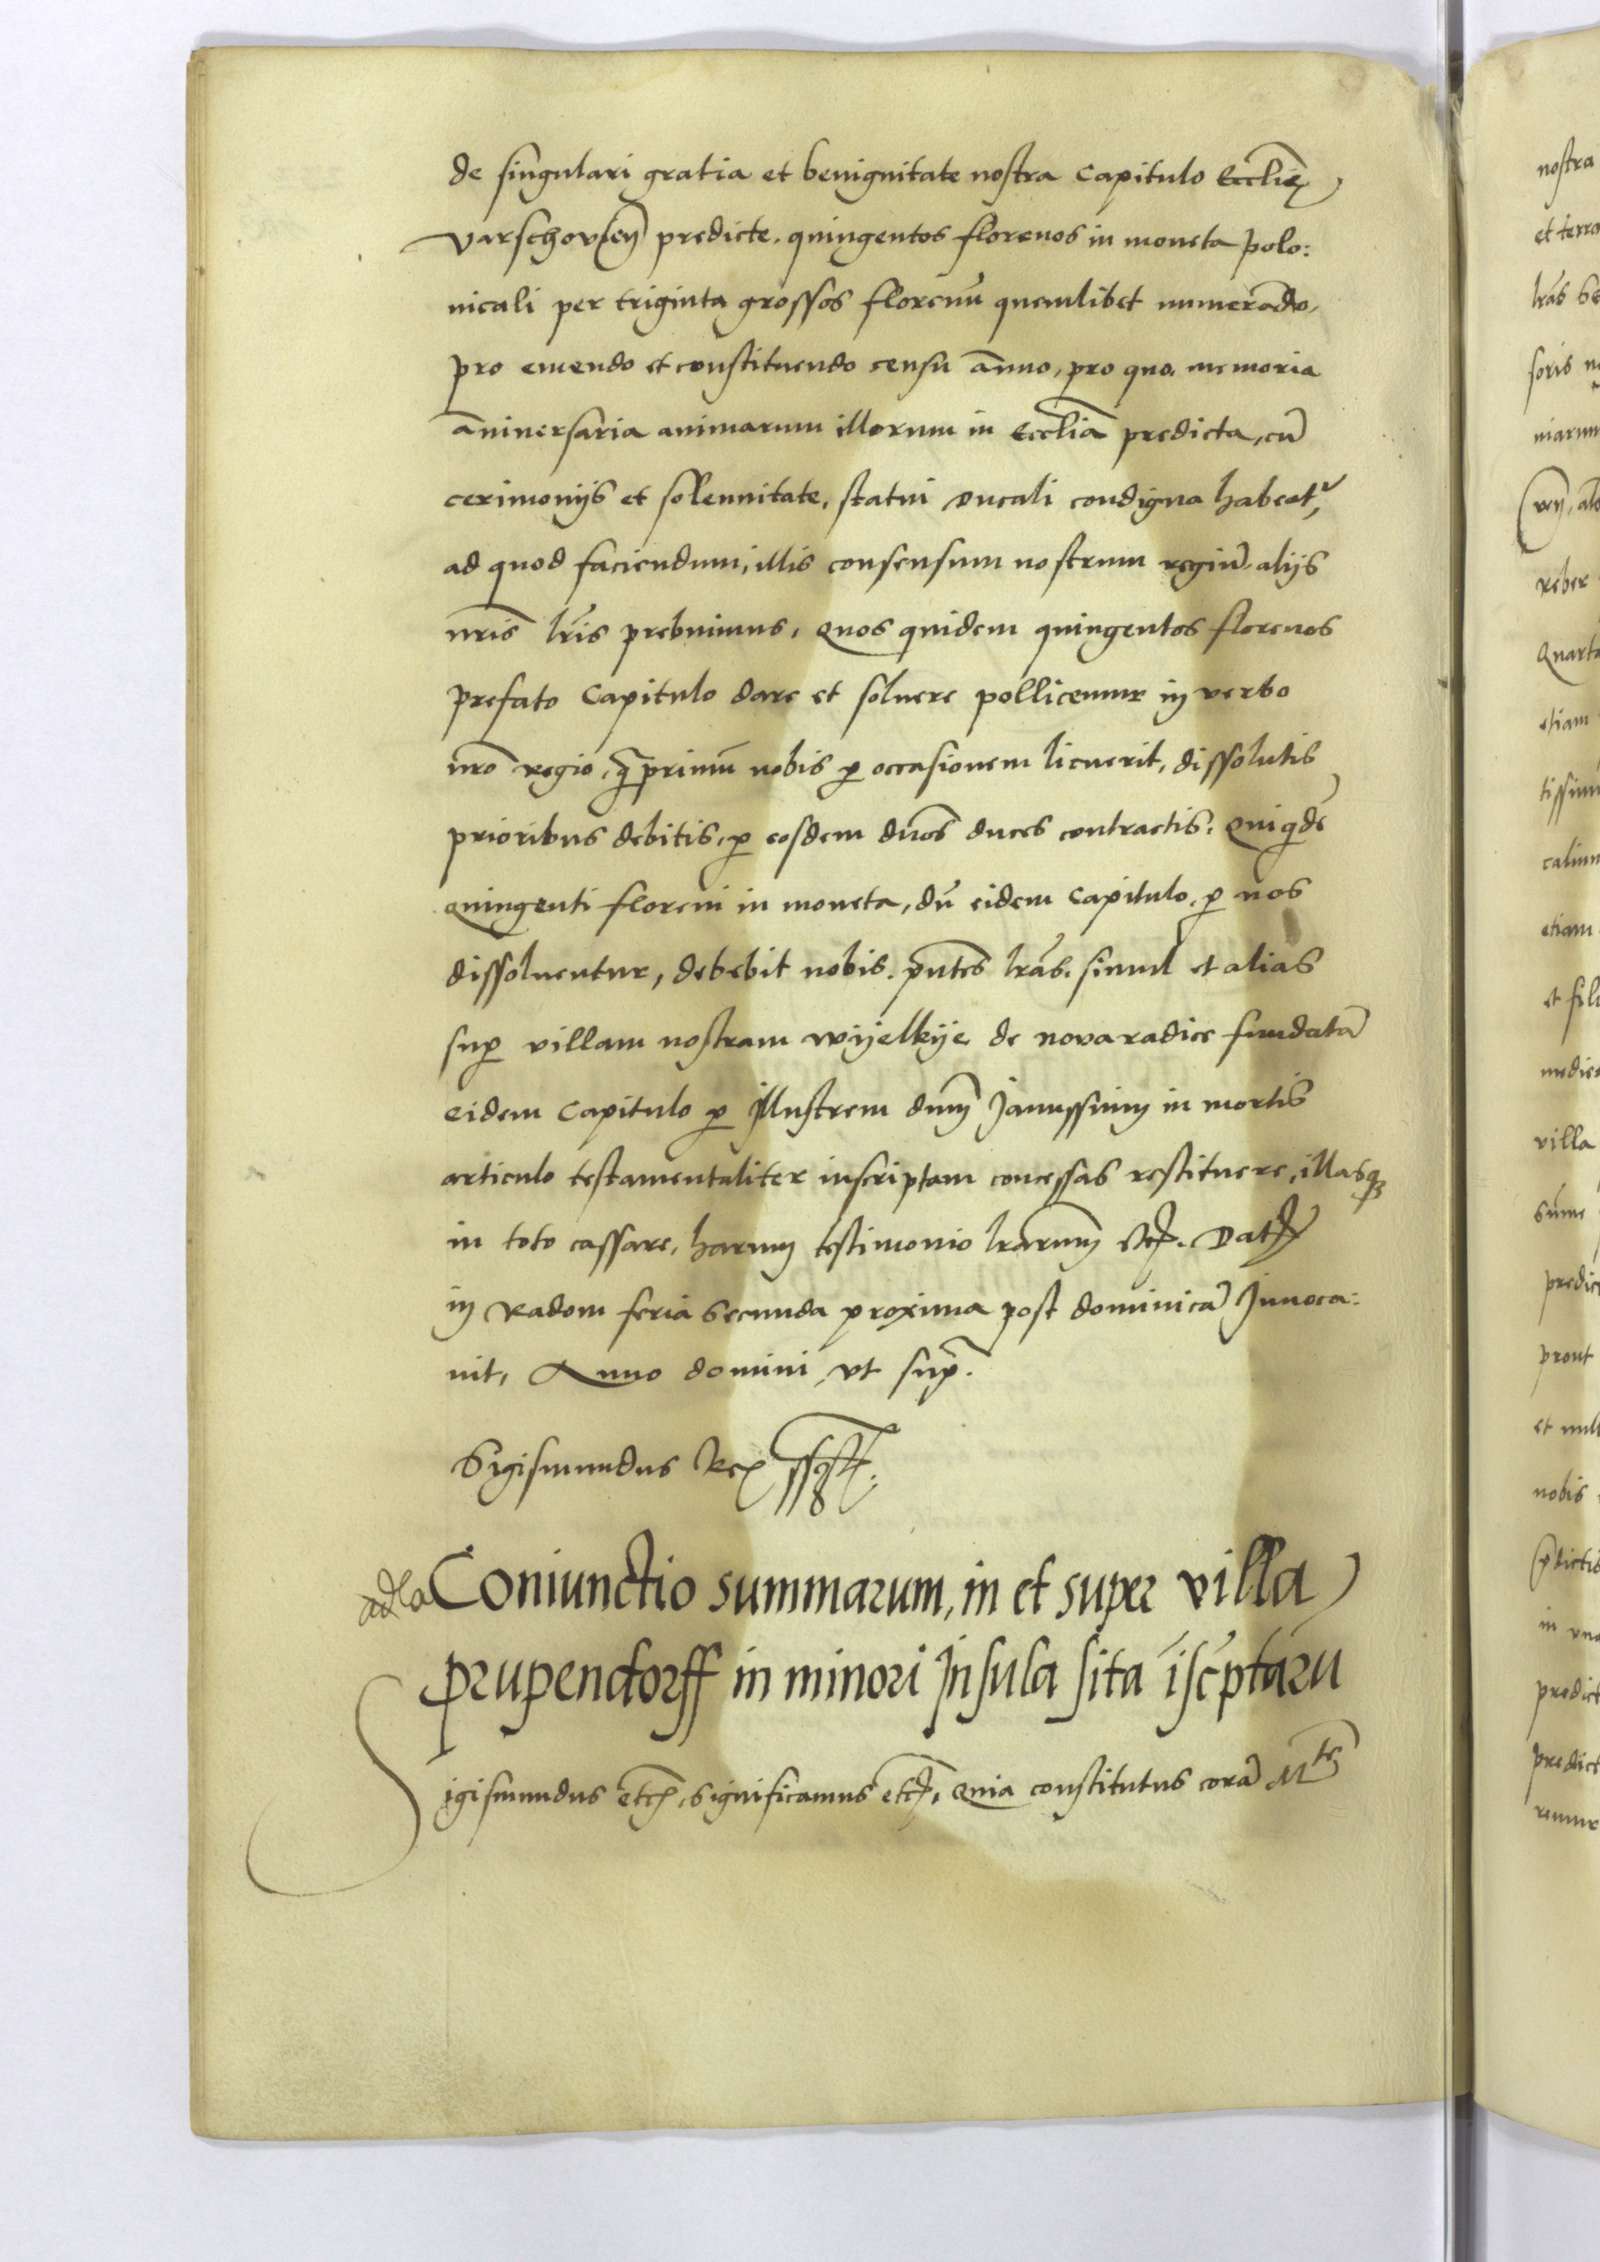 de singulari gratia et benignitate nostra Capitulo Ecclie
varschovien predicte. quingentos florenos in moneta polo:
nicali per triginta grossos florenū quemlibet numerādo,
pro emendo et constituendo censu ānuo, pro quo. memoria
āniuersaria animarum illorum in Ecclia predicta, cū
cerimoniis et solennitate, statui ducali condigna habeat᷑,
ad quod faciendum, illis consensum nostrum regiū. aliis
nris lris prebuimus, Quos quidem quingentos florenos
prefato Capitulo dare et soluere pollicemur in verbo
nro regio, q̄primū nobis ꝑ occasionem licuerit, dissolutis
prioribus debitis, ꝑ eosdem dnos duces contractis. Quiqdē
quingenti floreni in moneta, dū eidem Capitulo, ꝑ nos
dissoluentur, debebit nobis. pntes lras. simul et alias
suꝑ villam nostram wyelkye de nova radice fundatā
eidem Capitulo ꝑ Illustrem dnm Janussium in mortis
articulo testamentaliter inscriptam concessas restituere, illasqꝫ
in toto cassare, harum testimonio lrarum Etc. Dat
in Radom feria secunda proxima post dominicā Inuoca:
uit, Anno domini vt supra.
Sigismundus Rex sspt.
Coniunctio summarum, in et super villa
prupendorff in minori Insula sita īscͥptarū
Sigismundus etc, Significamus etc, Quia constitutus corā Mte
nostra
et terra
lras be
soris
niarum
reber
Quarta
etiam
tissim
calium
etiam
et fil
villa
sūme
predic
prout
et nul
nobis
pdictis
in vna
predict
predict
remur